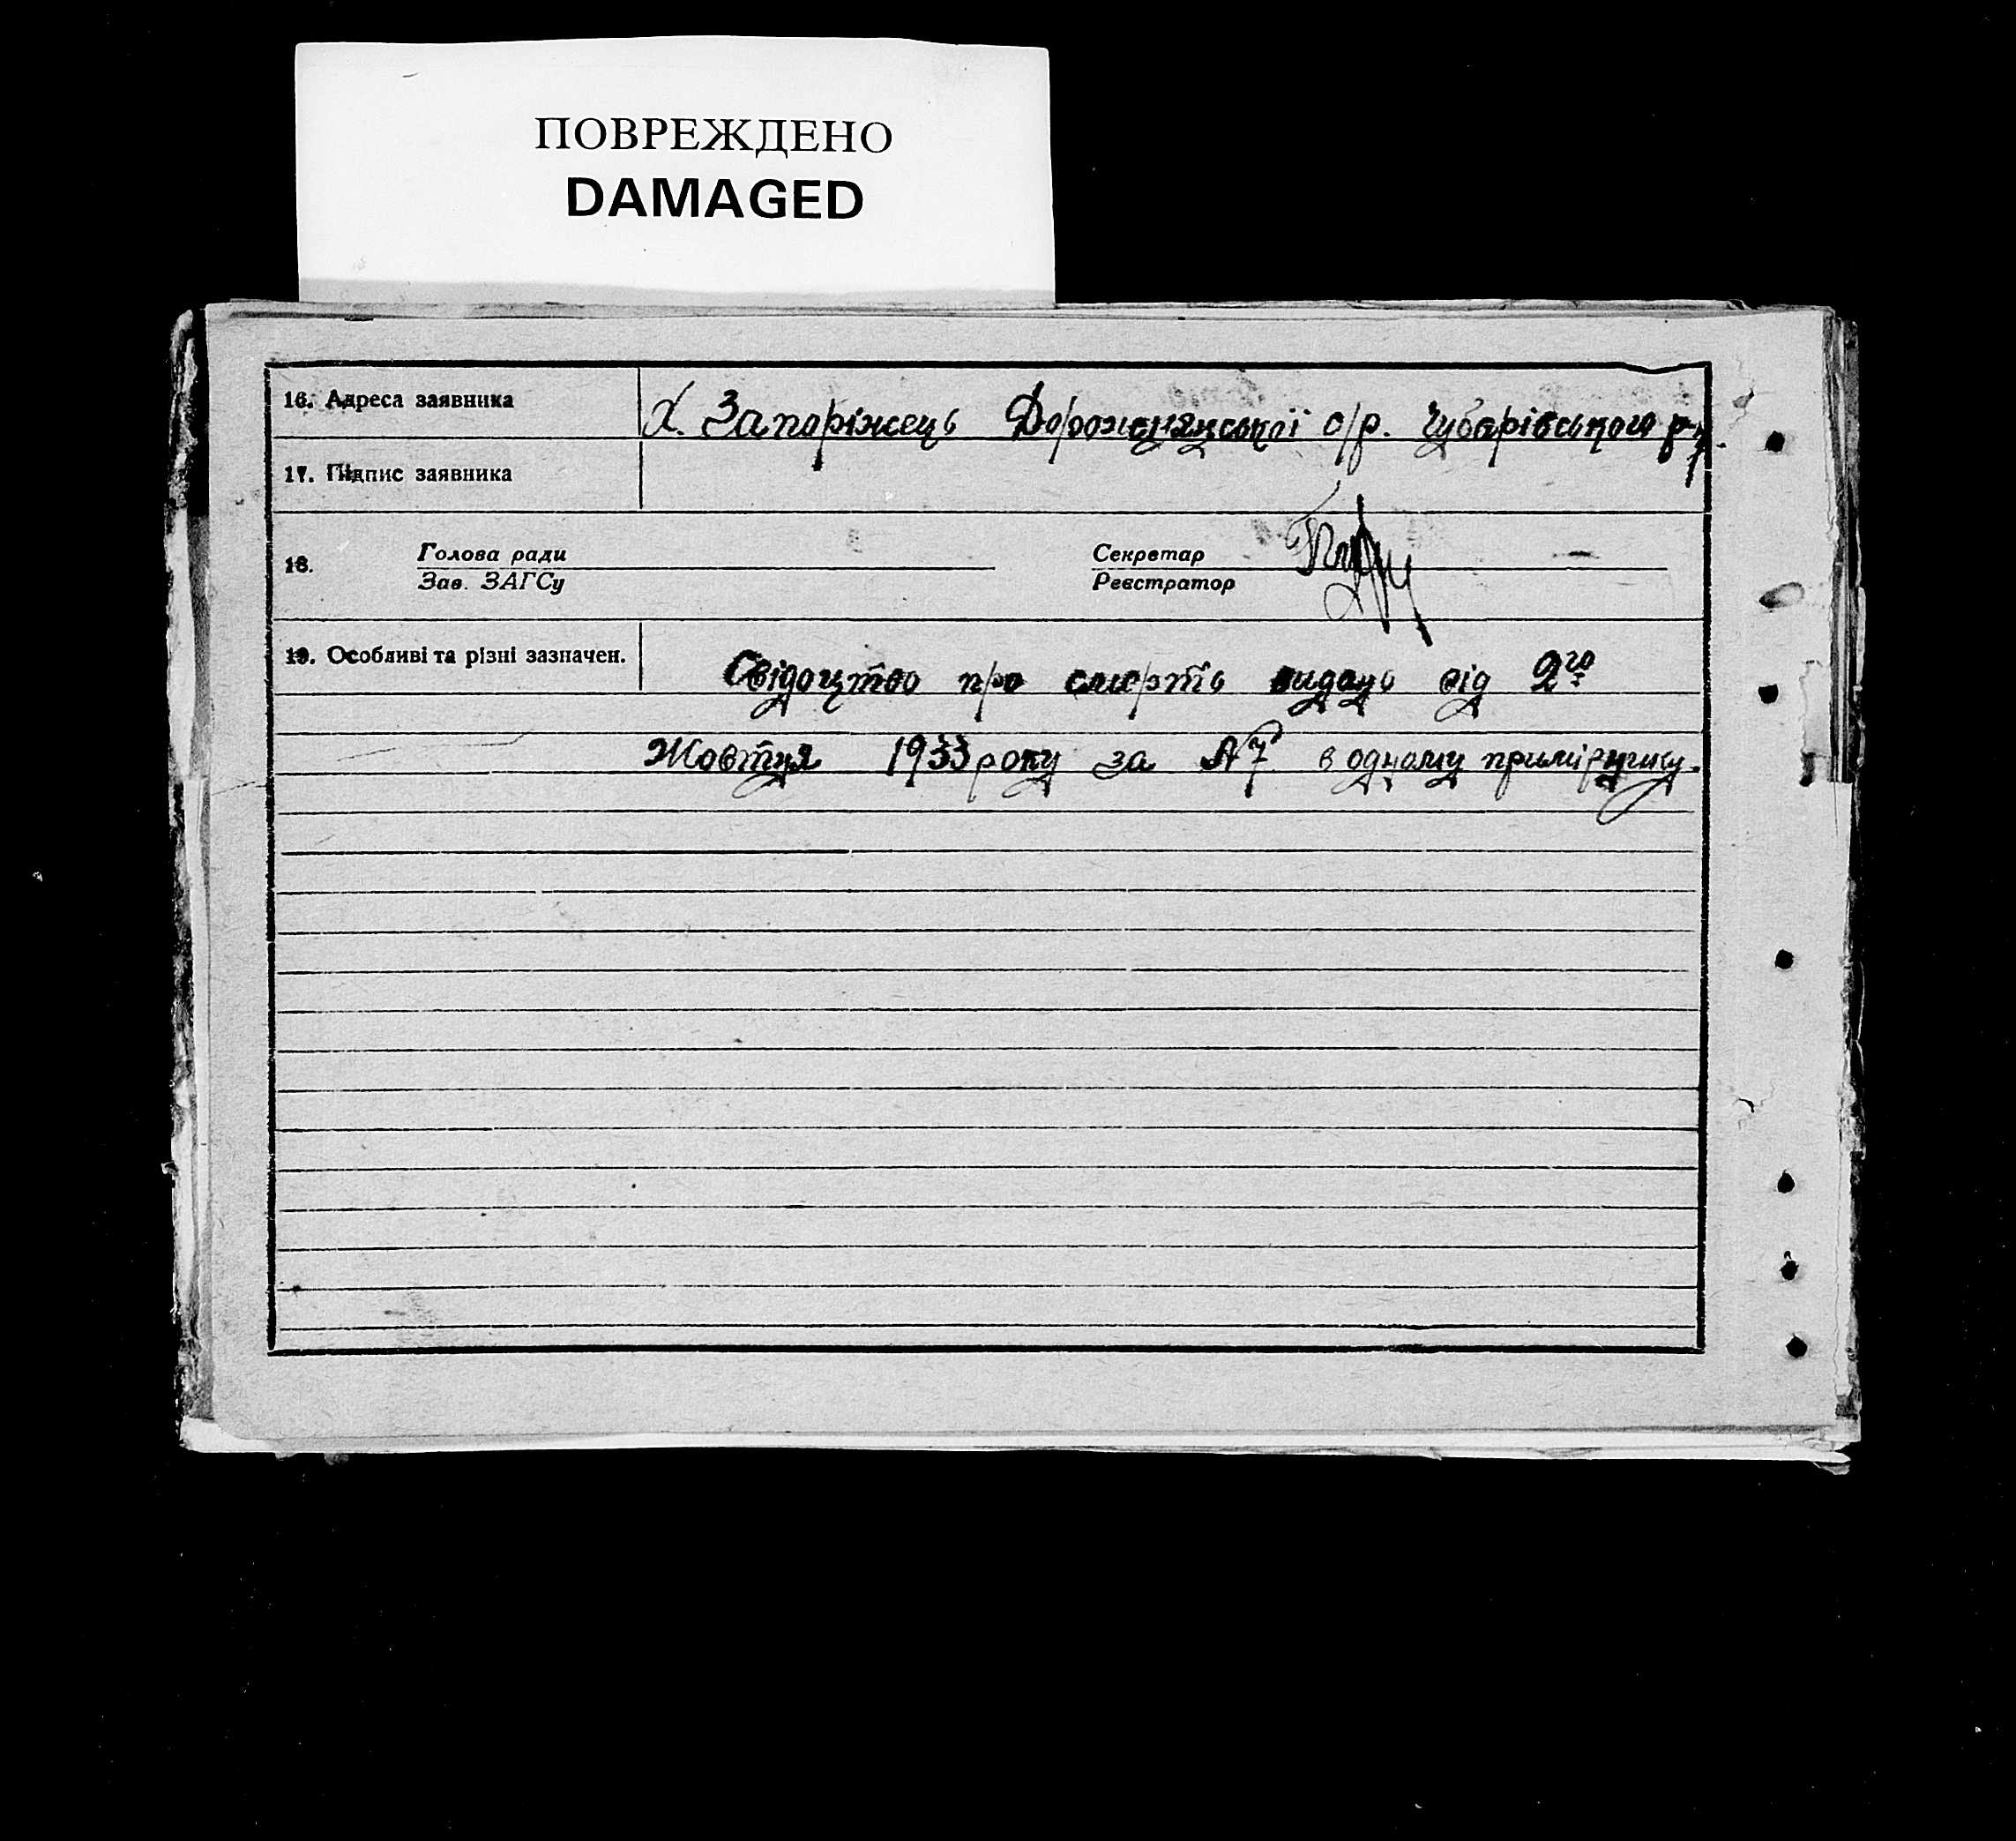 ПОВРЕЖДЕНО
DAMAGED
16. Адреса заявника Х. Запоріжець Дорожнянської с/р. Чубарівського р-н.
17. Підпис заявника
18. Голова ради Секретар
Зав. ЗАГСу Реєстратор
19. Особливі та різні зазначен. Свідоцтво про смерть видано від 2го
Жовтня 1933 року за №7 в одному примірнику.